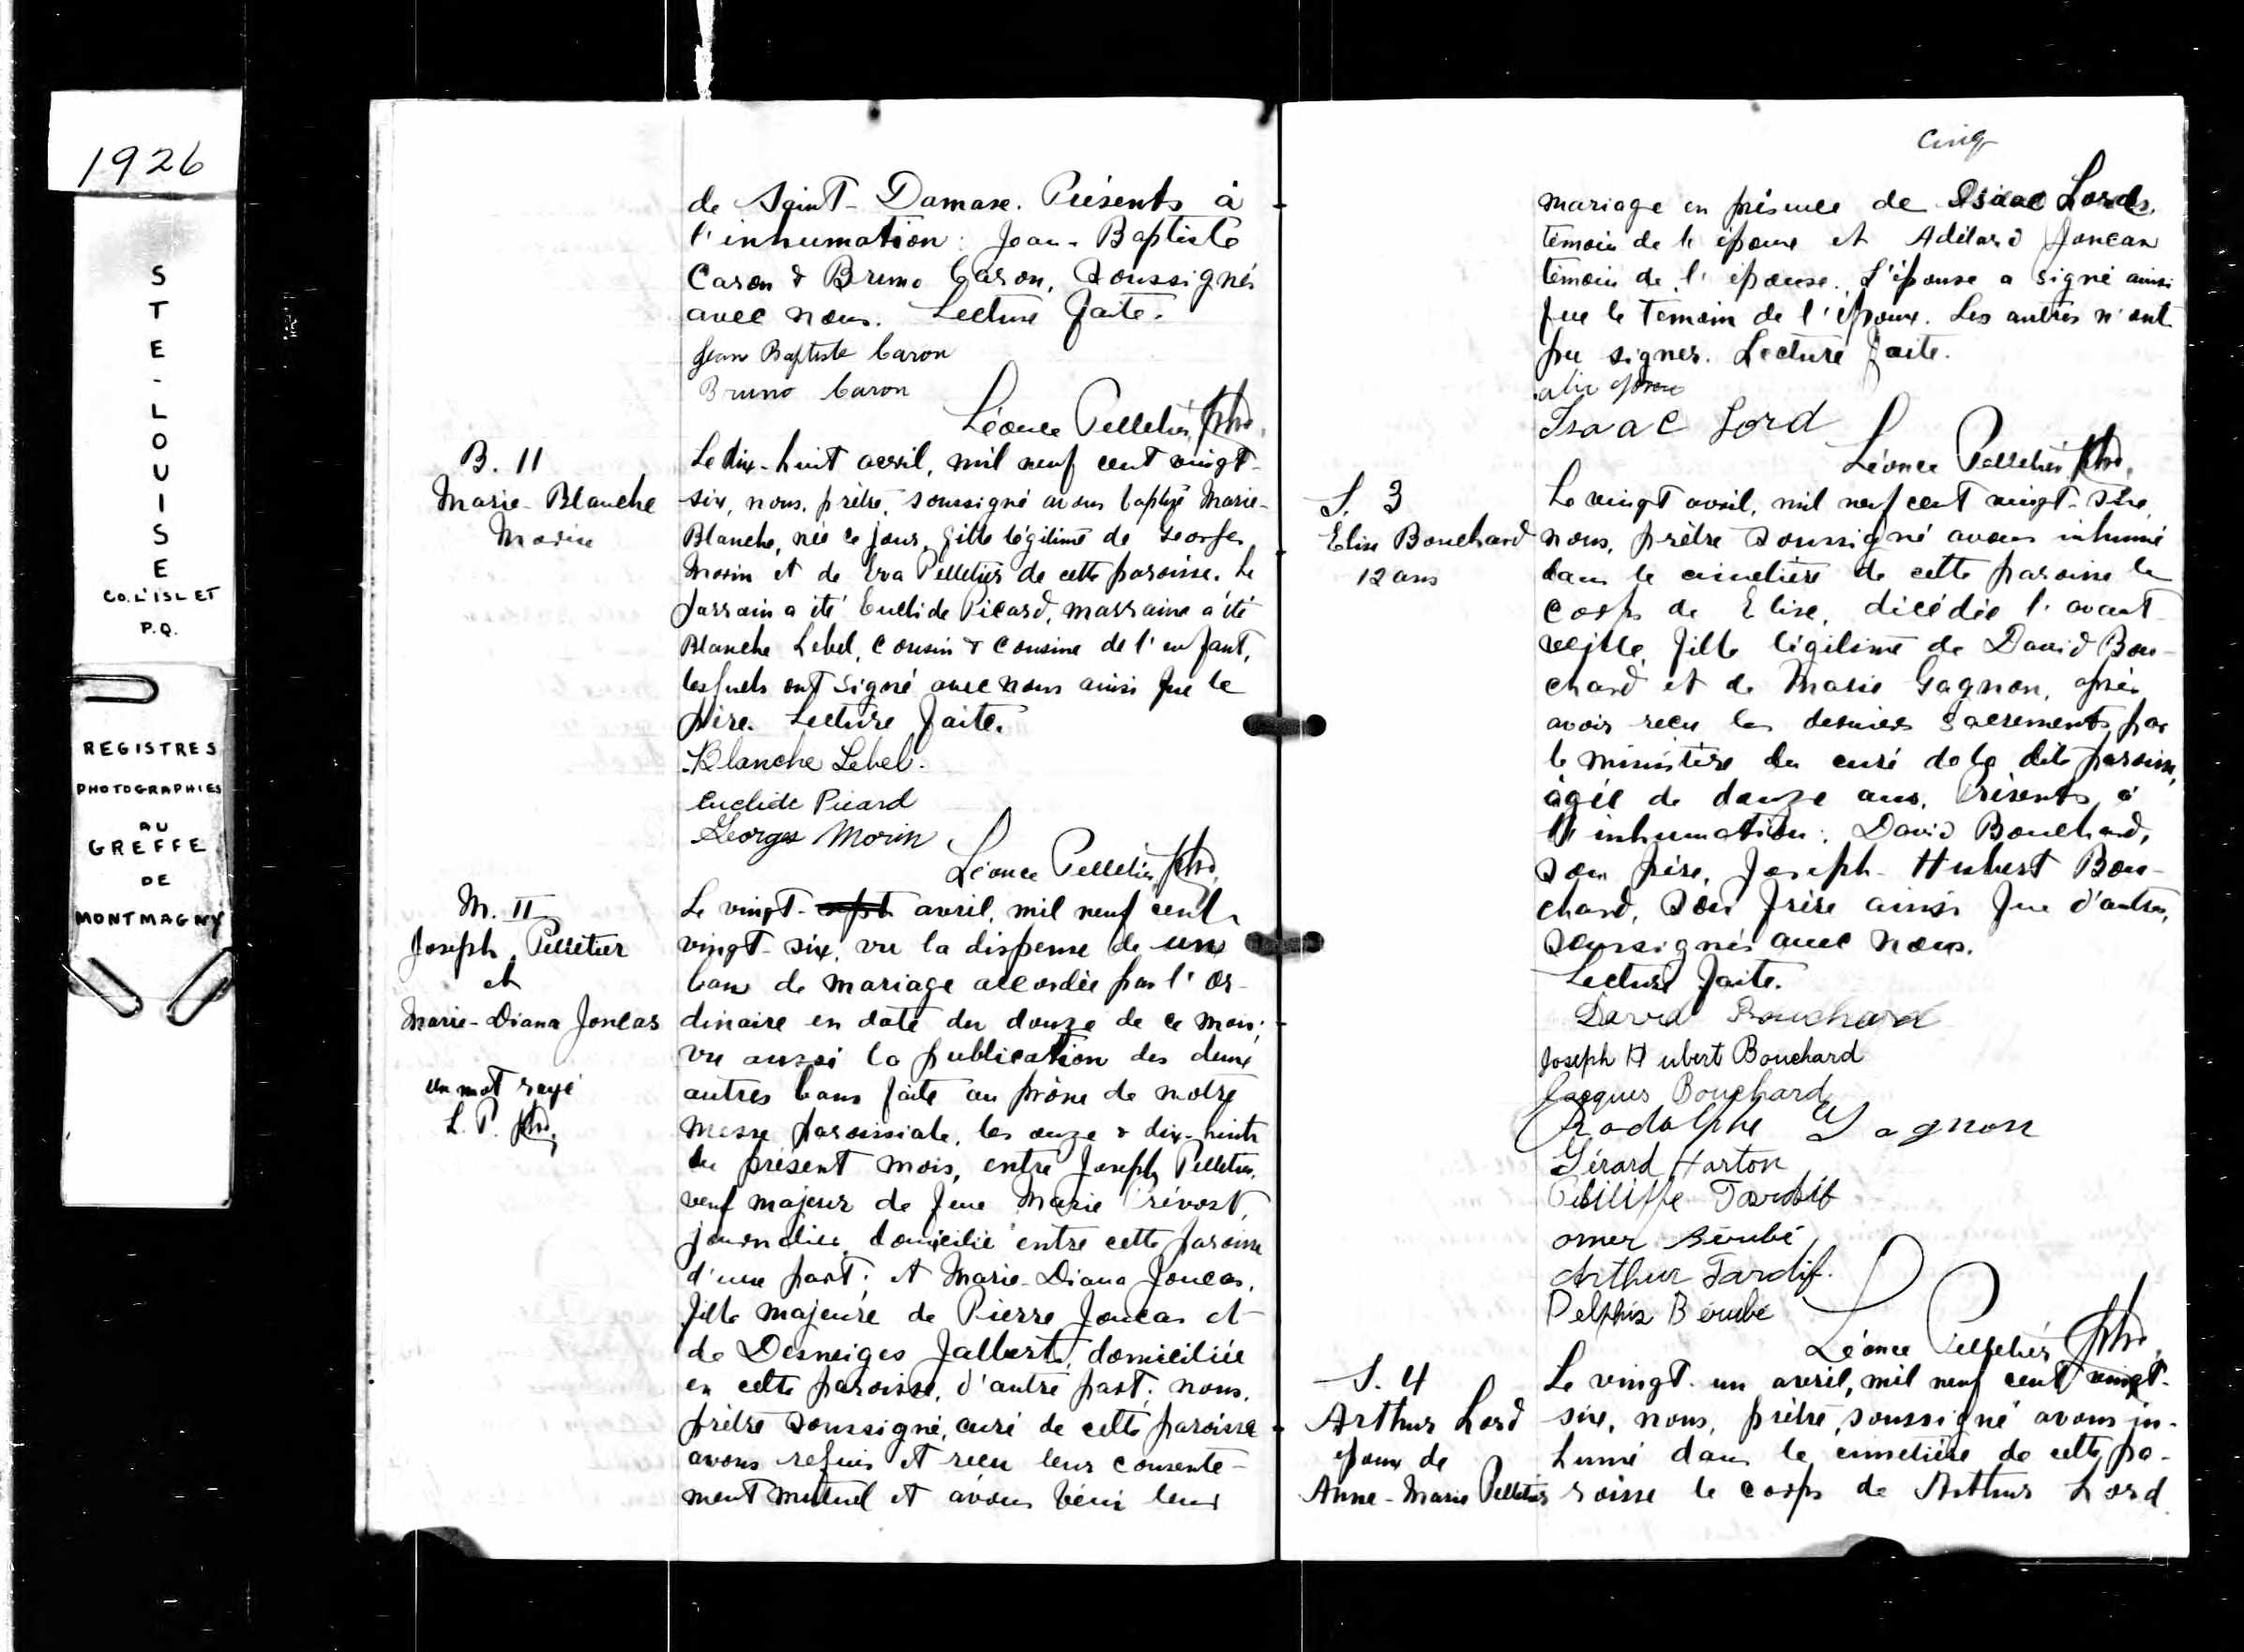 1926
STE-LOUISE
CO. L'ISLET
P.Q.
REGISTRES
PHOTOGRAPHIES
AU
GREFFE
DE
MONTMAGNY
de Saint-Damase. Présents à
l'inhumation: Jean-Baptiste
Caron & Bruno Caron, soussignés
avec nous. Lecture faite.
Jean Baptiste Caron
Bruno Caron
Léonce Pelletier, ptre.
B. 11
Marie-Blanche
Morin
Le dix-huit avril, mil neuf cent vingt-
six, nous, prêtre, soussigné avons baptisé Marie-
Blanche, née ce jour, fille légitime de Georges
Morin et de Eva Pelletier de cette paroisse. Le
parrain a été Euclide Picard, marraine a été
Blanche Lebel, cousin & cousine de l'enfant,
lesquels ont signé avec nous ainsi que le
père. Lecture faite.
Blanche Lebel.
Euclide Picard
Georges Morin
Léonce Pelletier, ptre.
M. II
Joseph Pelletier
et
Marie-Diana Joncas
un mot rayé
L. P. ptre.
Le vingt-sept avril, mil neuf cent
vingt-six, vu la dispense de un
ban de mariage accordée par l'or-
dinaire en date du douze de ce mois;
vu aussi la publication des deux
autres bans faite au prône de notre
messe paroissiale, les onze & dix-huit
du présent mois, entre Joseph Pelletier,
veuf majeur de feue Marie Prévost,
journalier, domicilié entre cette paroisse
d'une part; et Marie-Diana Joncas,
fille majeure de Pierre Joncas et
de Desneiges Jalbert, domiciliée
en cette paroisse, d'autre part; nous,
prêtre soussigné, curé de cette paroisse
avons requis et reçu leur consente-
ment mutuel et avons béni leur
cinq
mariage en présence de Isaac Lord,
témoin de l'époux et Adélard Joncas
témoin de l'épouse. L'épouse a signé ainsi
que le témoin de l'époux. Les autres n'ont
pu signer. Lecture faite.
Isaac Lord
Léonce Pelletier ptre.
S. 3
Elise Bouchard
12 ans
Le vingt avril, mil neuf cent vingt-six,
nous, prêtre soussigné avons inhumé
dans le cimetière de cette paroisse le
corps de Elise, décédée l'avant-
veille, fille légitime de David Bou-
chard et de Marie Gagnon, après
avoir reçu les derniers sacrements par
le ministère du curé de la dite paroisse,
âgée de douze ans. Présents à
l'inhumation: David Bouchard,
son père, Joseph-Hubert Bou-
chard, son frère ainsi que d'autres,
soussignés avec nous.
Lecture faite.
David Bouchard
Joseph Hubert Bouchard
Jacques Bouchard
Rodolphe Gagnon
Gérard Harton
Philippe Tardif
omer Bérubé
Arthur Tardif.
Delphis Bérubé
Léonce Pelletier ptre.
S. 4
Arthur Lord
époux de
Anne-Marie Pelletier
Le vingt-un avril, mil neuf cent vingt-
six, nous, prêtre, soussigné avons in-
humé dans le cimetière de cette pa-
roisse le corps de Arthur Lord